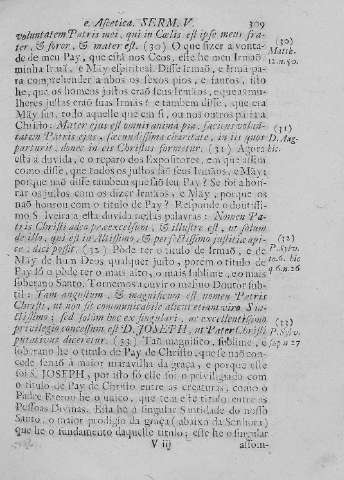 e Ascetica. SERM. V. 309
voluntatem Patris mei, qui in Cœlis est ipse meus fra-
ter, & soror, & mater est. (30) O que fizer a vonta-
de de meu Pay, que està nos Ceos, esse he meu Irmaõ
minha Irmã, e Mãy espiritual. Disse Irmaõ, e Irmã pa-
ra comprehender a ambos os sexos pios, e santos, isto
he, que os homens justos eraõ seus Irmãos, e que as mu-
lheres justas eraõ suas Irmãs; e tambem disse, que era
Mãy sua, todo aquelle que em si, ou nos outros paria a
Christo: Mater ejus est omnis anima pia, faciens volun-
tatem Patris ejus, fecundissima charitate, in iis quos
parturit, donec in eis Christus formetur. (31) Agora
està a duvida, e o reparo dos Expositores, em que assim
como disse, que todos os justos saõ seus Irmãos, e Mãy;
porque naõ disse tambem que saõ seu Pay? Se foi a hon-
rar os justos com os dizer Irmãos, e Mãy, porque os
naõ honrou com o titulo de Pay? Responde o doutissi-
mo Silveira a esta duvida nestas palavras: Nomen Pa-
tris Christi adeo præexcelsum, & illustre est, ut solum
de illo, qui est in Altissimo, & perfectissimo justitiæ api-
ce, dici possit. (32) Póde ter o titulo de Irmaõ, e de
Mãy de hum Deos qualquer justo, porem o titulo de
Pay só o póde ter o mais alto, o mais sublime, e o mais
soberano Santo. Tornemos a ouvir o mesmo Doutor sub-
til: Tam augustum, & magnificum est nomen Patris
Christi, ut non sit communicabile alicui etiam viro San-
ctissimo; sed solum huic ex singulari, ac excellentissimo
privilegio concessum est D. JOSEPH, ut Pater Christi
putativus diceretur. (33) Tam magnifico, sublime, e
soberano he o titulo de Pay de Christo, que se naõ con-
cede senaõ à maior maravilha da graça, e porque elle
foi S. JOSEPH, por isso só elle foi o privilegiado com
o titulo de Pay de Christo entre as creaturas, como o
Padre Eterno he o unico, que tem este titulo entre as
Pessoas Divinas. Esta he a singular Santidade do nosso
Santo, o maior prodigio da graça (abaixo da Senhora)
que he o fundamento daquelle titulo; esse he o singular
V iij
assom-
(30)
Matth.
12. n. 50.
(31)
D. Aug.
hic.
(32)
P. Sylv.
to. 6. hic
q. 6. n. 26
(33)
P. Sylv.
sup. n 27